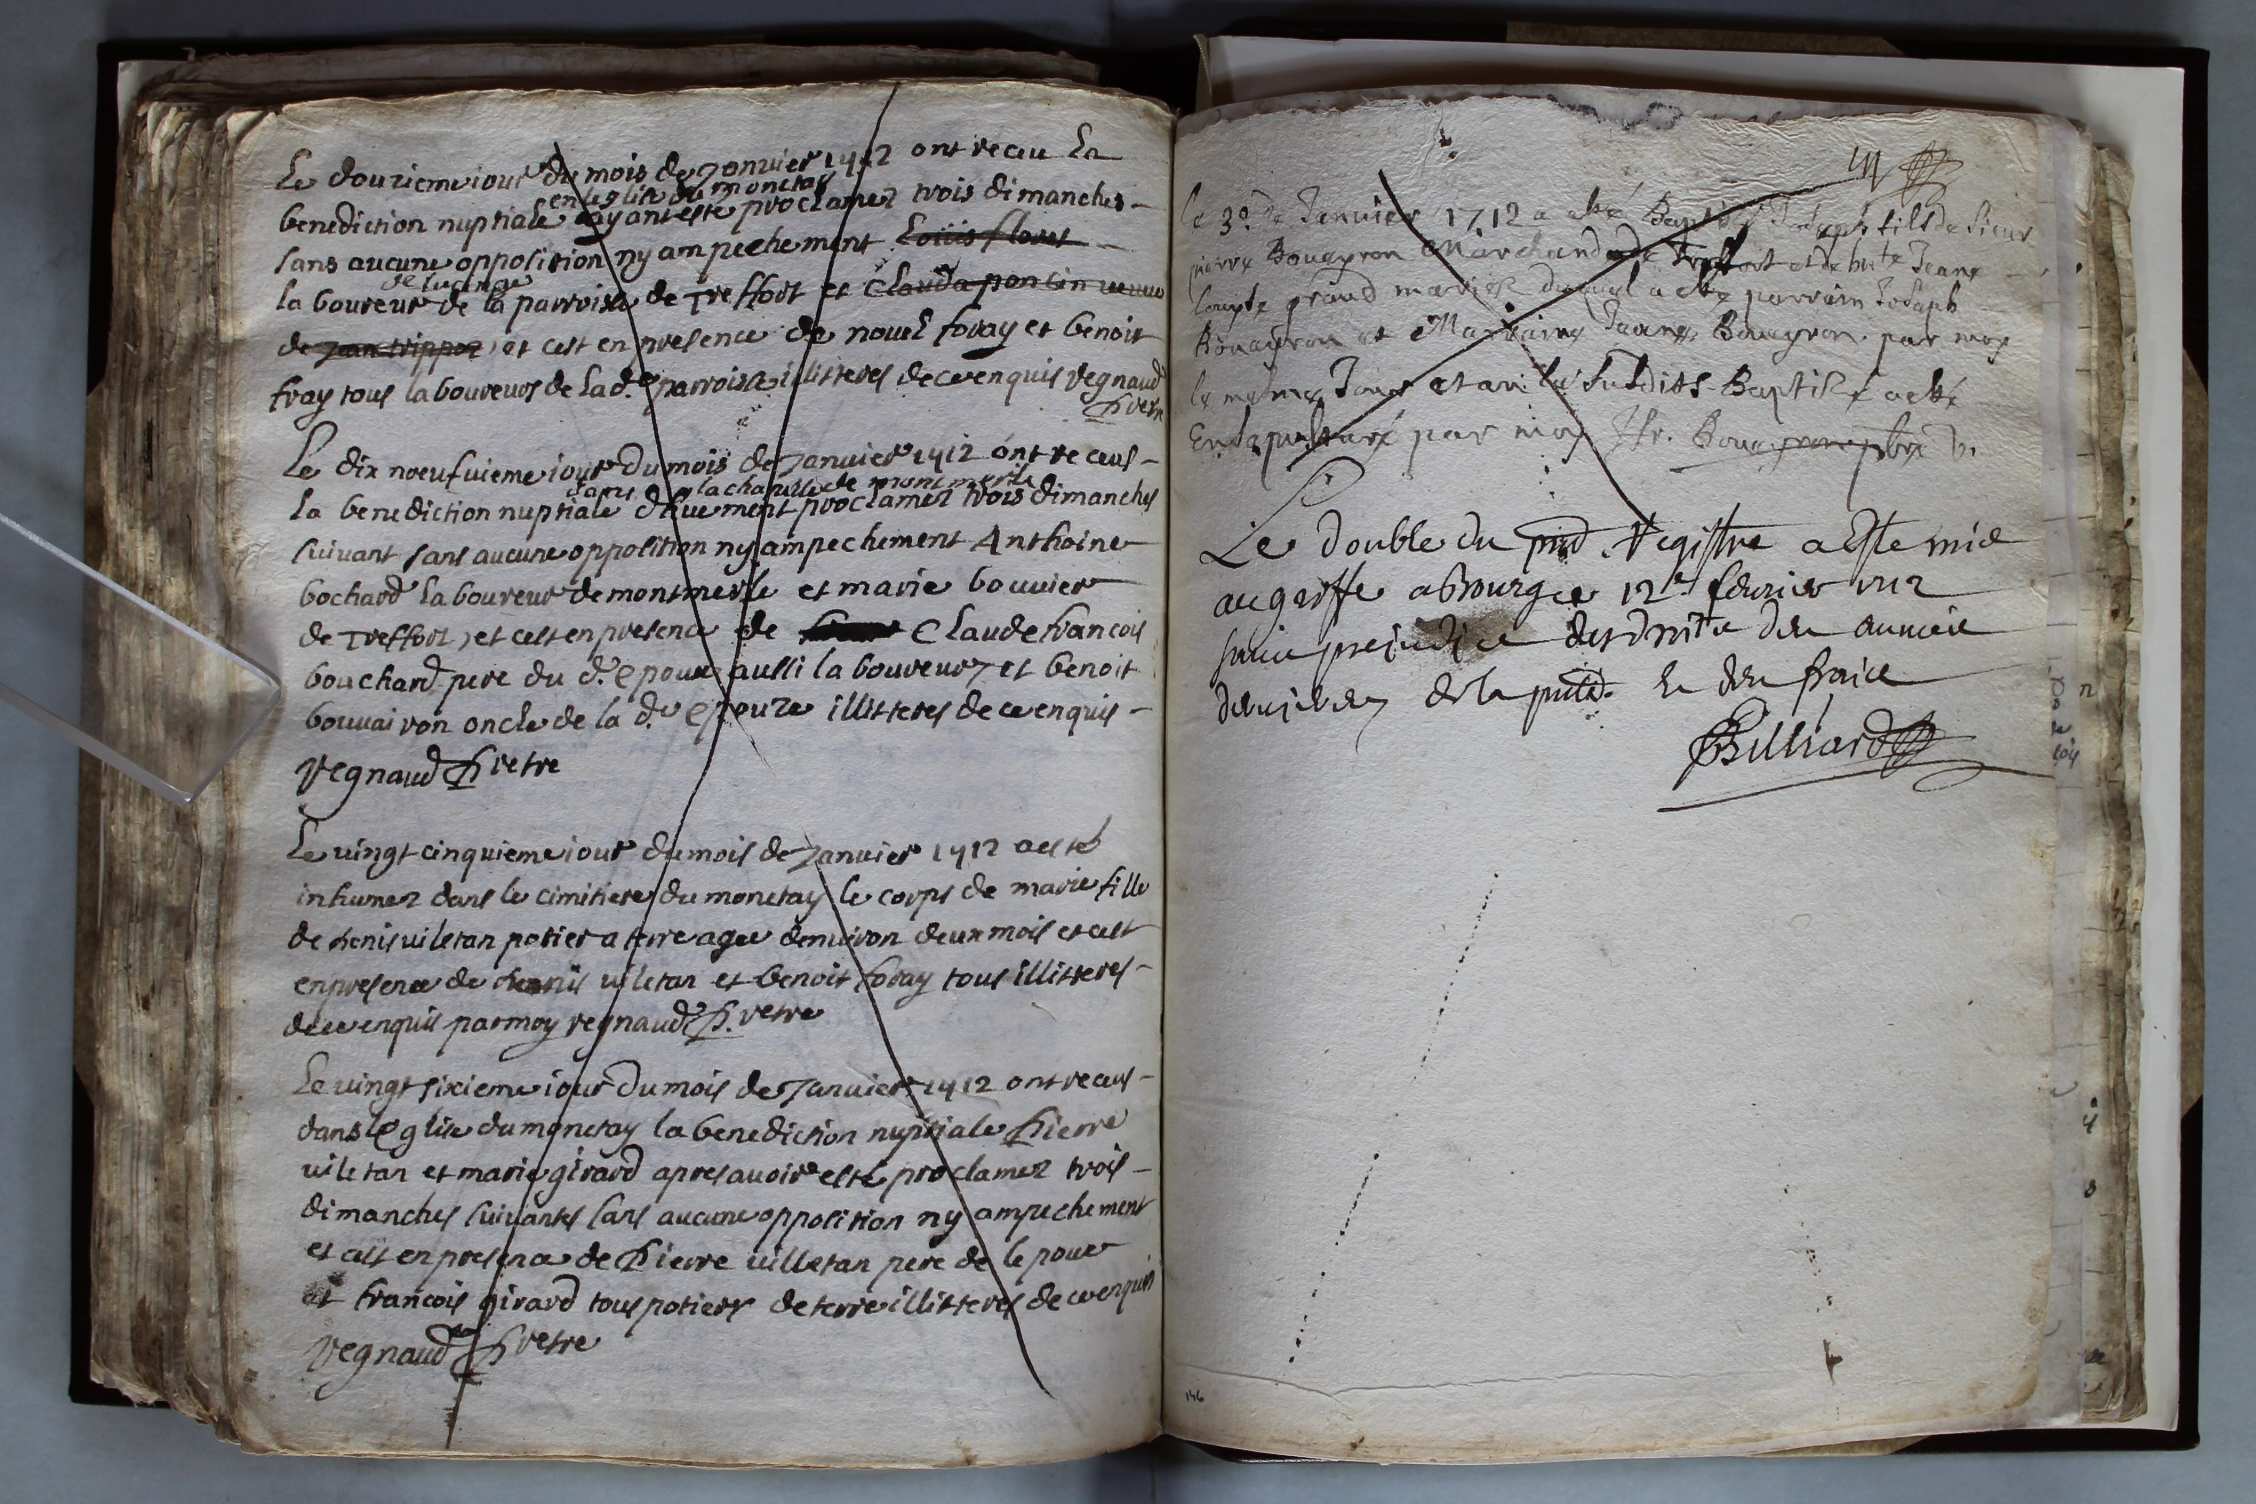 Le douzieme iour du mois de Janvier 1712 ont receu la
en leglise du monetay
benediction nuptiale ayant esté proclamez trois dimanches
sans aucune opposition ny ampechement Loüis floret
la boureur de la parroisse de Treffort et Clauda pontin veuve
de Jean trippoz, et cest en presence de nouel foray et benoit
fray tous laboureurs de lad. parroisse illitteres de ce enquis regnaud
pretre
Le dix noeufuieme iour du mois de Janvier 1712 ont receus
dans la chapelle de mont merle
la benediction nuptiale düement proclamez trois dimanches
suivant sans aucune opposition ny ampechement Anthoine
bochard laboureur de montmerle et marie bouvier
de Treffort, et cest en presence de Claude francois
bouchard pere du d. epoux aussi laboureur, et benoit
bouvairon oncle de la d. epouze illitteres de ce enquis
regnaud pretre
Le vingt cinquieme iour du mois de Janvier 1712 a esté
inhumez dans le cimitiere du monetay le corps de marie fille
de denis viletan potier a terre agee denviron deux mois et cest
en presence de denis viletan et benoit foray tous illitteres
de ce enquis par moy regnaud pretre
Le vingt sixieme iour du mois de Janvier 1712 ont receus
dans leglise du monetay la benediction nuptiale pierre
viletan et marie girard apres avoir esté proclamez trois
dimanches suivantes sans aucune opposition ny ampechement
et cest en presence de pierre villetan pere de lepoux
et francois girard tous potiers de terre illitteres de ce enquis
regnaud pretre
le 3e. de Janvier 1712 a esté Baptisé Joseph fils de sieur
pierre Bouayron Marchand de Treffort et de hte Jeane
Compte grand mariez duquel a esté parrain Joseph
Bouayron et Marraine Jeane Bouayron par moy
le mesme Jour et an le susdits Baptisé a esté
Ensepulturé par moy Bouayron pbre v.
Le double du pnt. Registre a Este mis
au greffe a bourg ce 12e fevrier 1712
sans prejudice des droits des annees
dernieres de la pnte. et des frais
Billiard
146